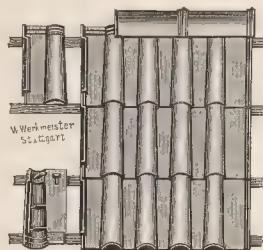 W. Werkmeister
Stuttgart